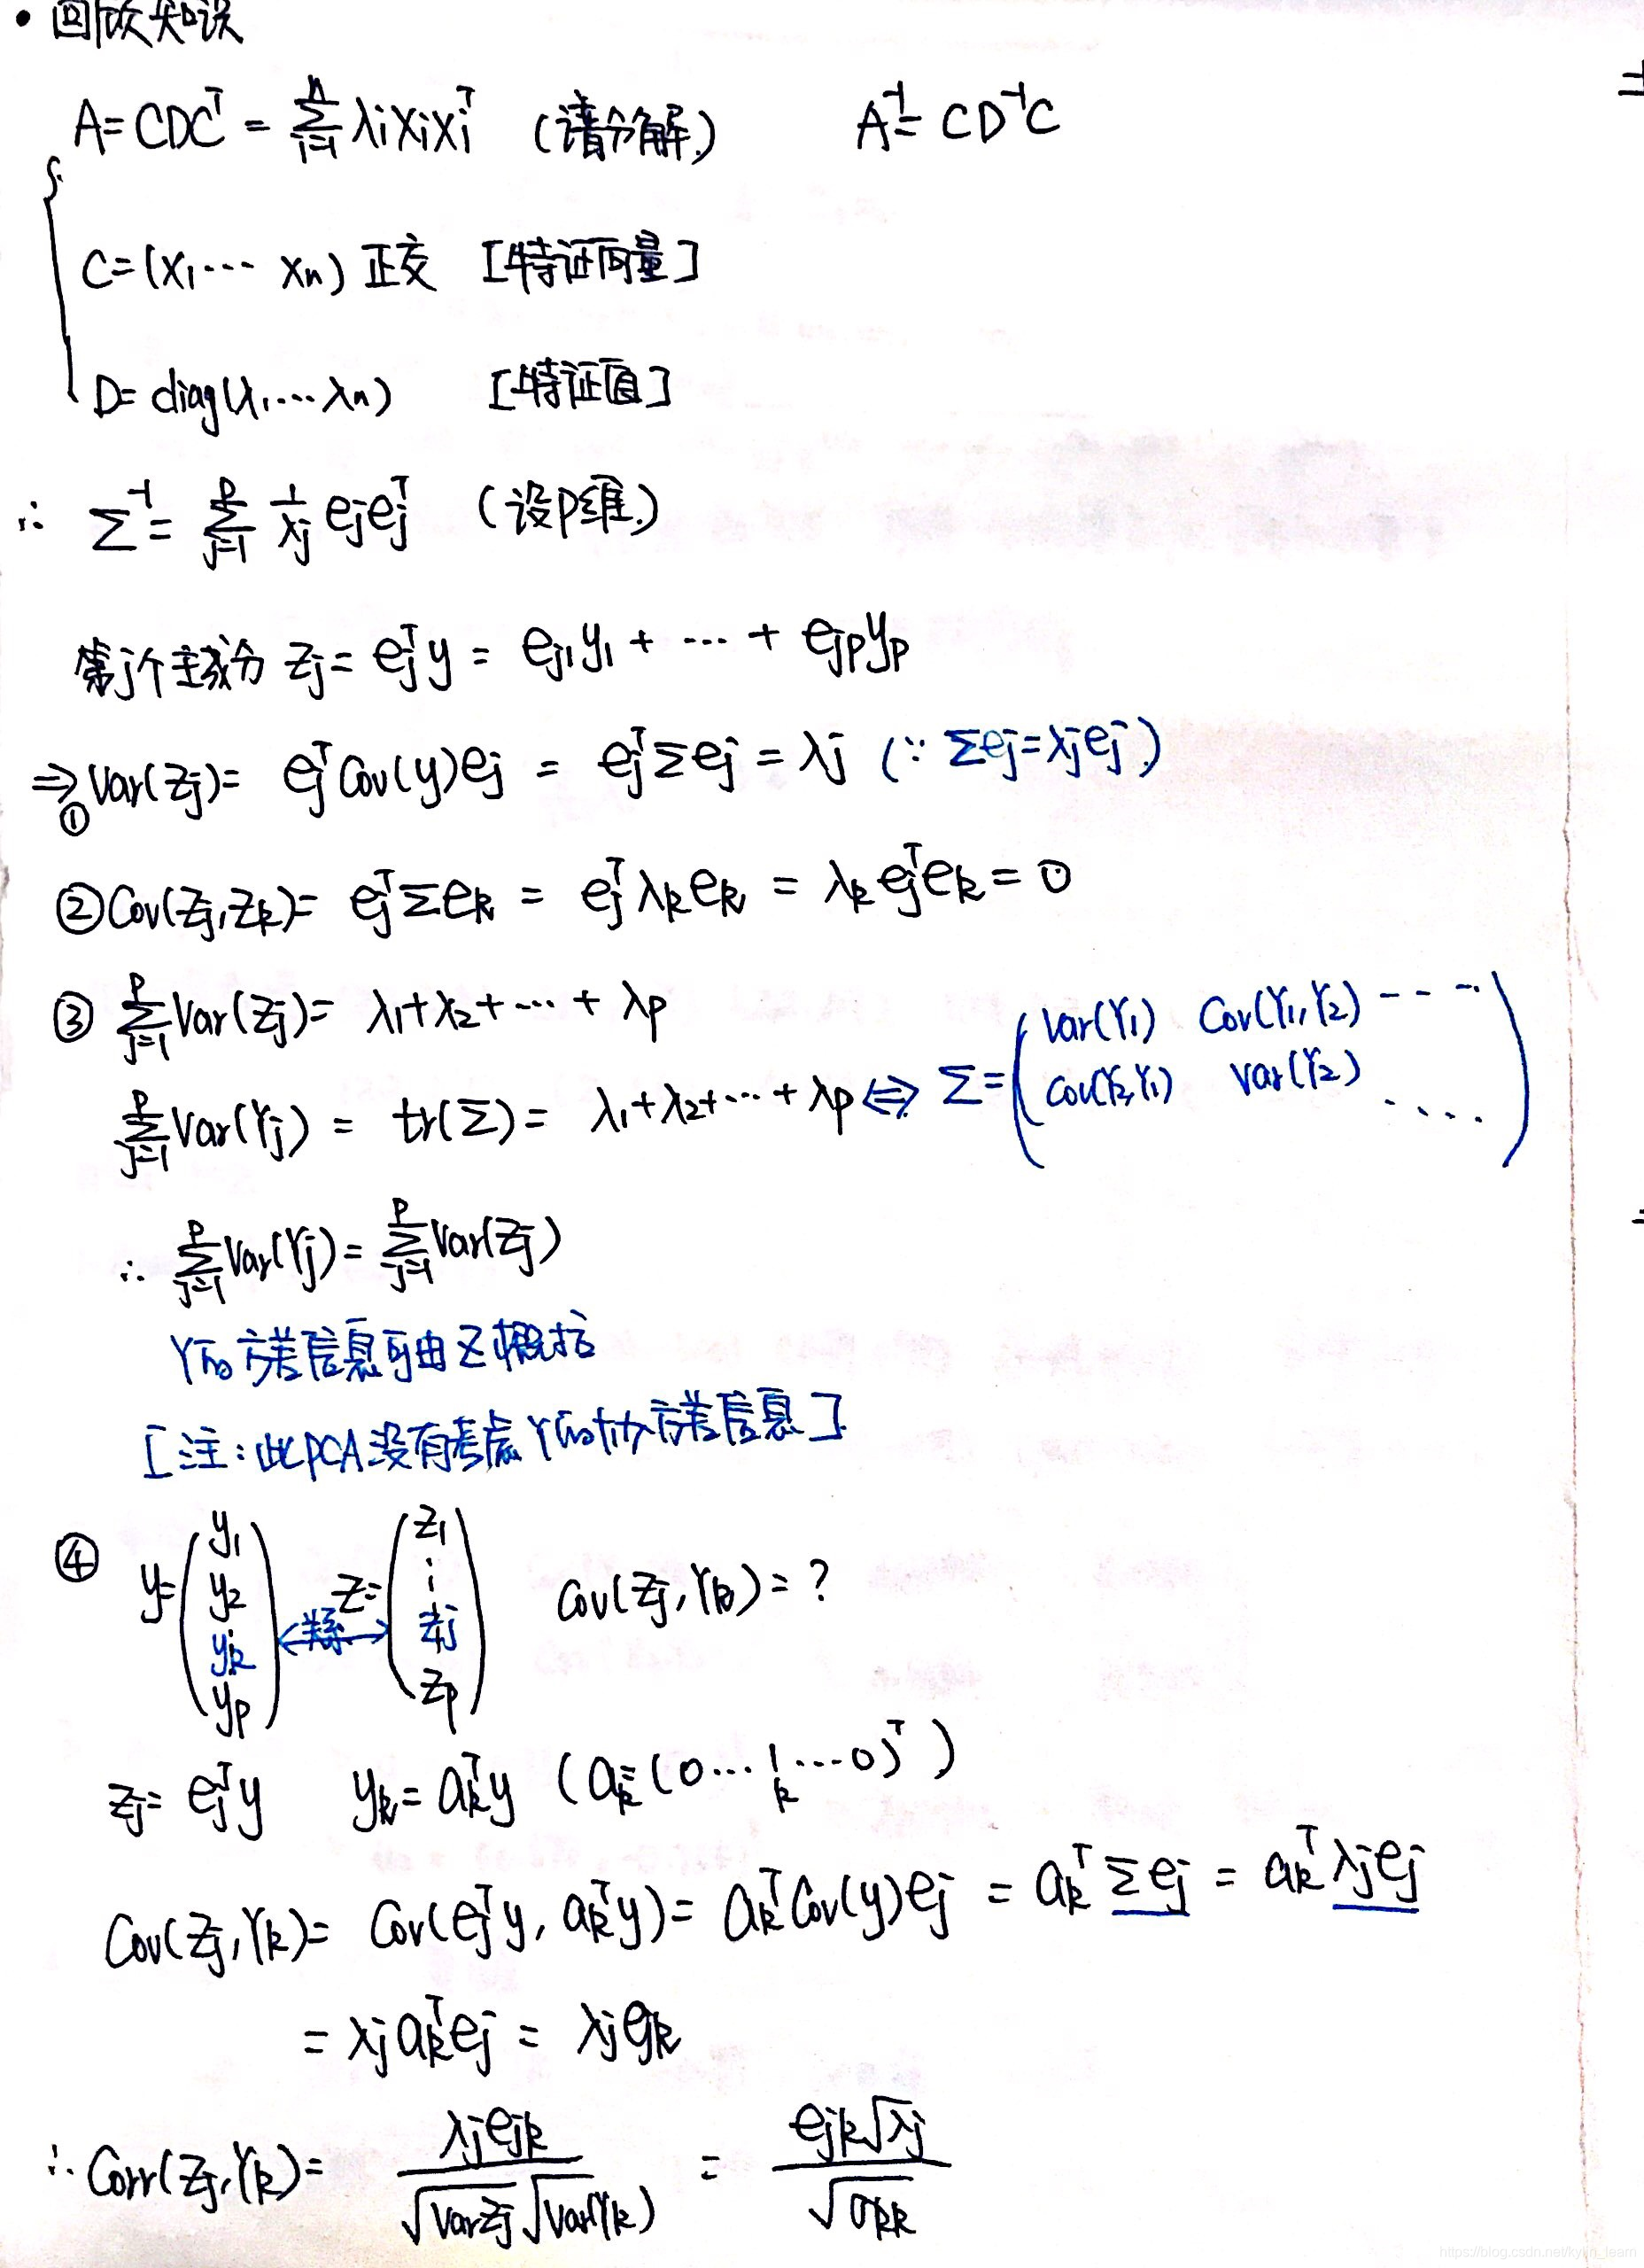 • 回顾知识
A = CDCᵀ = Σⁿᵢ₌₁ λᵢxᵢxᵢᵀ (谱分解) A⁻¹ = CD⁻¹C
C = (x₁ ⋯ xₙ) 正交 [特证向量]
D = diag(λ₁ ⋯ λₙ) [特证值]
∴ Σ⁻¹ = Σᵖⱼ₌₁ 1/λⱼ eⱼeⱼᵀ (设p维)
第j个主成分 zⱼ = eⱼᵀy = eⱼ₁y₁ + ⋯ + eⱼₚyₚ
⇒① Var(zⱼ) = eⱼᵀCov(y)eⱼ = eⱼᵀΣeⱼ = λⱼ (∵ Σeⱼ = λⱼeⱼ)
② Cov(zⱼ, zₖ) = eⱼᵀΣeₖ = eⱼᵀλₖeₖ = λₖeⱼᵀeₖ = 0
③ Σᵖⱼ₌₁ Var(zⱼ) = λ₁ + λ₂ + ⋯ + λₚ
Σᵖⱼ₌₁ Var(Yⱼ) = tr(Σ) = λ₁ + λ₂ + ⋯ + λₚ ⇔ Σ = ( Var(Y₁) Cov(Y₁, Y₂) ---
Cov(Y₂, Y₁) Var(Y₂) ···· )
∴ Σᵖⱼ₌₁ Var(Yⱼ) = Σᵖⱼ₌₁ Var(zⱼ)
Y的方差信息可由Z概括
[注:此PCA没有考虑Y的协方差信息]
④ y = (y₁ y₂ yₖ yₚ) ⟷关系 z = (z₁ ⋮ zⱼ zₚ) Cov(zⱼ, Yₖ) = ?
zⱼ = eⱼᵀy yₖ = aₖᵀy (aₖ = (0 ⋯ 1 ⋯ 0)ᵀ)
k
Cov(zⱼ, Yₖ) = Cov(eⱼᵀy, aₖᵀy) = aₖᵀCov(y)eⱼ = aₖᵀΣeⱼ = aₖᵀλⱼeⱼ
= λⱼaₖᵀeⱼ = λⱼeⱼₖ
∴ Corr(zⱼ, Yₖ) = λⱼeⱼₖ / √Var zⱼ √Var(Yₖ) = eⱼₖ√λⱼ / √σₖₖ